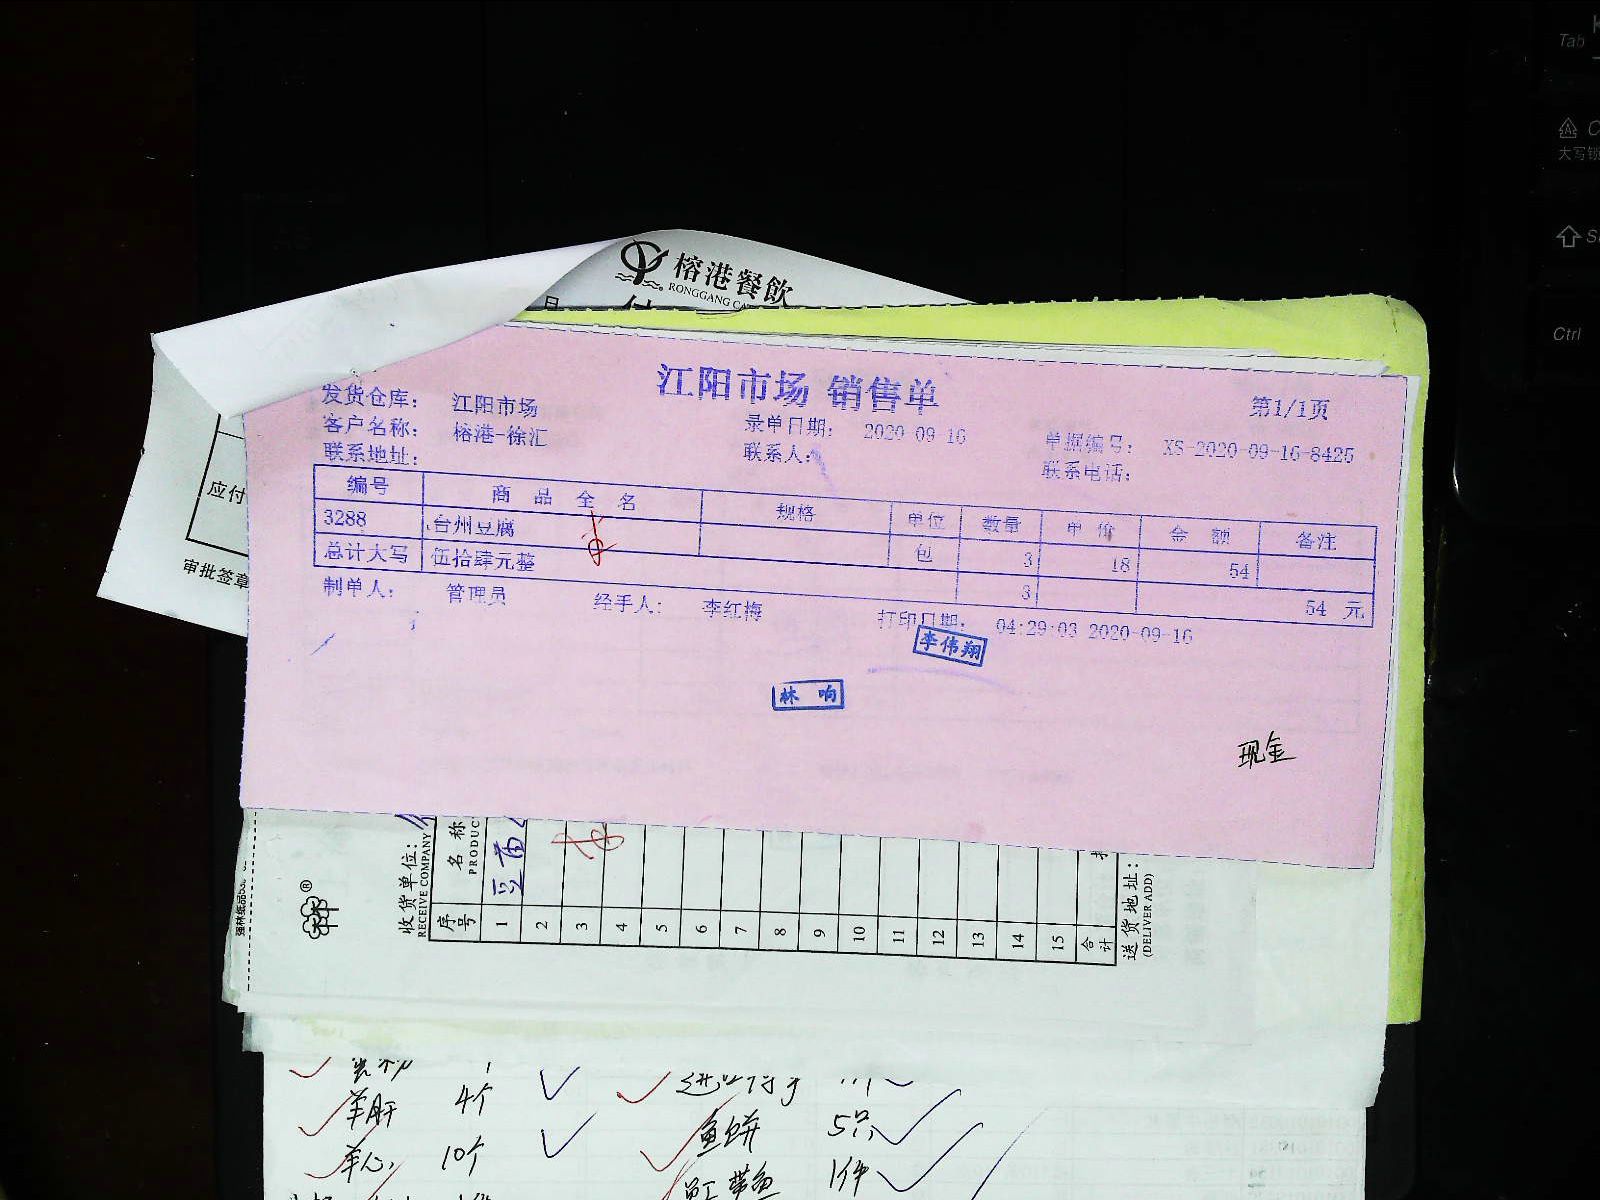 榕港餐飲
月
应付
审批签章
江阳市场 销售单
第1/1页
发货仓库： 江阳市场
客户名称： 榕港-徐汇 录单日期： 2020-09-16 单据编号： XS-2020-09-16-8425
联系地址： 联系人： 联系电话：
编号 商品全名 规格 单位 数量 单价 金额 备注
3288 台州豆腐 包 3 18 54
总计大写 伍拾肆元整 3 54 元
制单人： 管理员 经手人： 李红梅 打印日期： 04:29:03 2020-09-16
李伟翔
林响
现金
收货单位：
RECEIVE COMPANY
序号 名称
PRODUC
1 豆苗
2
3
4
5
6
7
8
9
10
11
12
13
14
15
合计
送货地址：
(DELIVER ADD)
羊肝 4个
鱼饼 5只
羊心 10个
员工带鱼 1件
Tab
大写锁
Ctrl